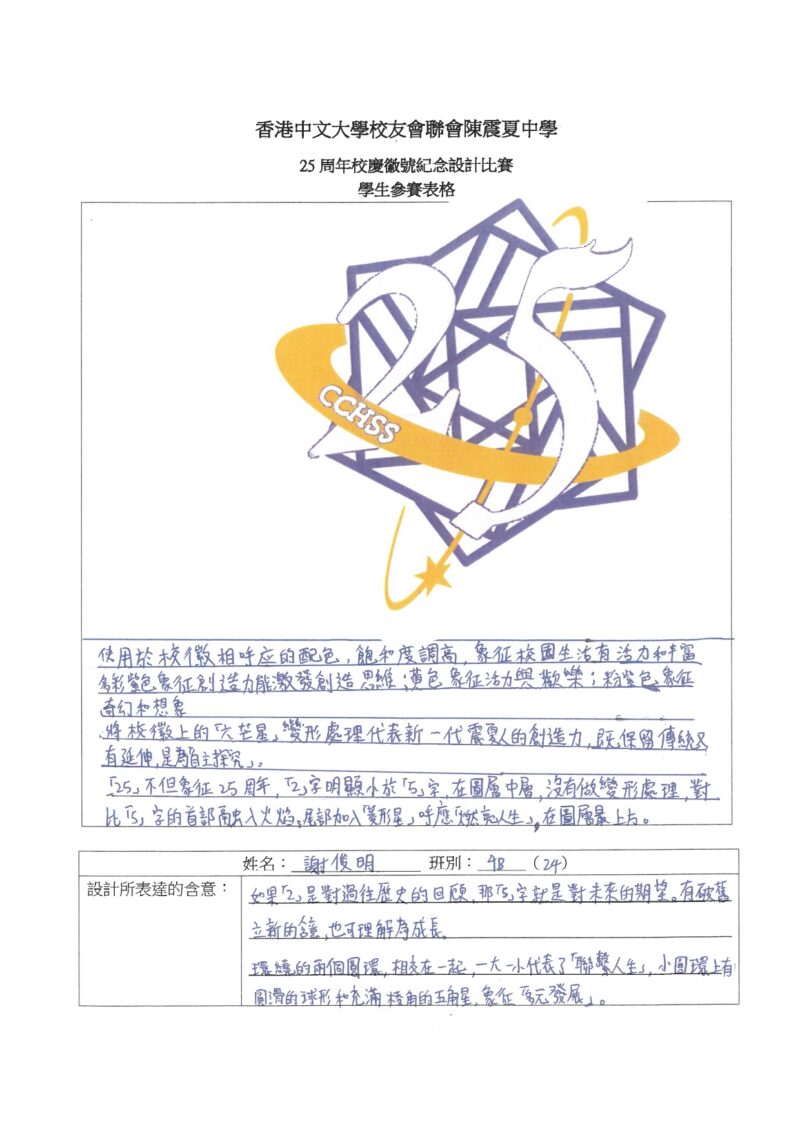 香港中文大學校友會聯會陳震夏中學
25 周年校慶徽號紀念設計比賽
學生參賽表格
25
CCHSS
使用於校徽相呼应的配色，飽和度調高，象征校園生活有活力和丰富
多彩紫色象征創造力能激發創造思維；黄色象征活力與歡樂；粉紫色象征
奇幻和想象
將校徽上的「六芒星」變形處理代表新一代震夏人的創造力，既保留傳統又
有延伸，是為「自主探究」。
「25」不但象征25周年，「2」字明顯小於「5」字，在圖層中層，沒有做變形處理，對
比「5」字的首部融入火焰，尾部加入「菱形星」呼應「燃亮人生」，在圖層最上片。
姓名： 謝俊明 班別： 4B （24）
設計所表達的含意：
如果「2」是對過往歷史的回顧，那「5」字就是對未來的期望。有破舊
立新的含意，也可理解為成長。
環繞的兩個圓環，相交在一起，一大一小代表了「聯繫人生」，小圓環上有
圓滑的球形和充滿棱角的五角星，象征「多元發展」。